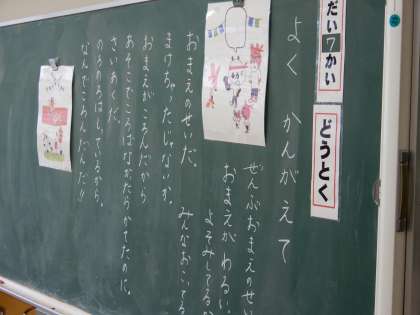 だい7かい
どうとく
よく かんがえて
ぜんぶおまえのせい
おまえがわるい。
よそみしてるか
みんなおこてる
おまえのせいだ。
まけちゃったじゃないか。
おまえがころんだから
あそこでころばなかたらかてたのに。
さいあくだ。
のろのろはしっているから。
なんでころんだんだ!!